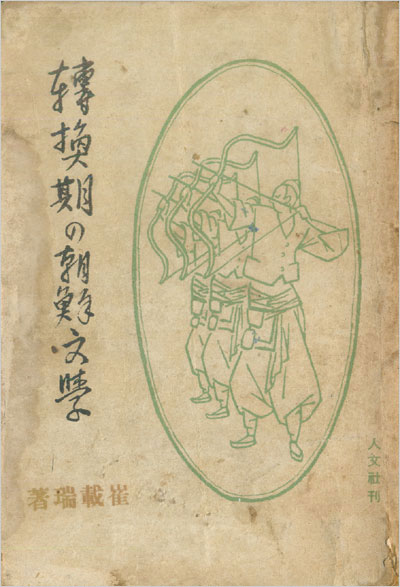 轉換期の朝鮮文學
崔載瑞著
人文社刊